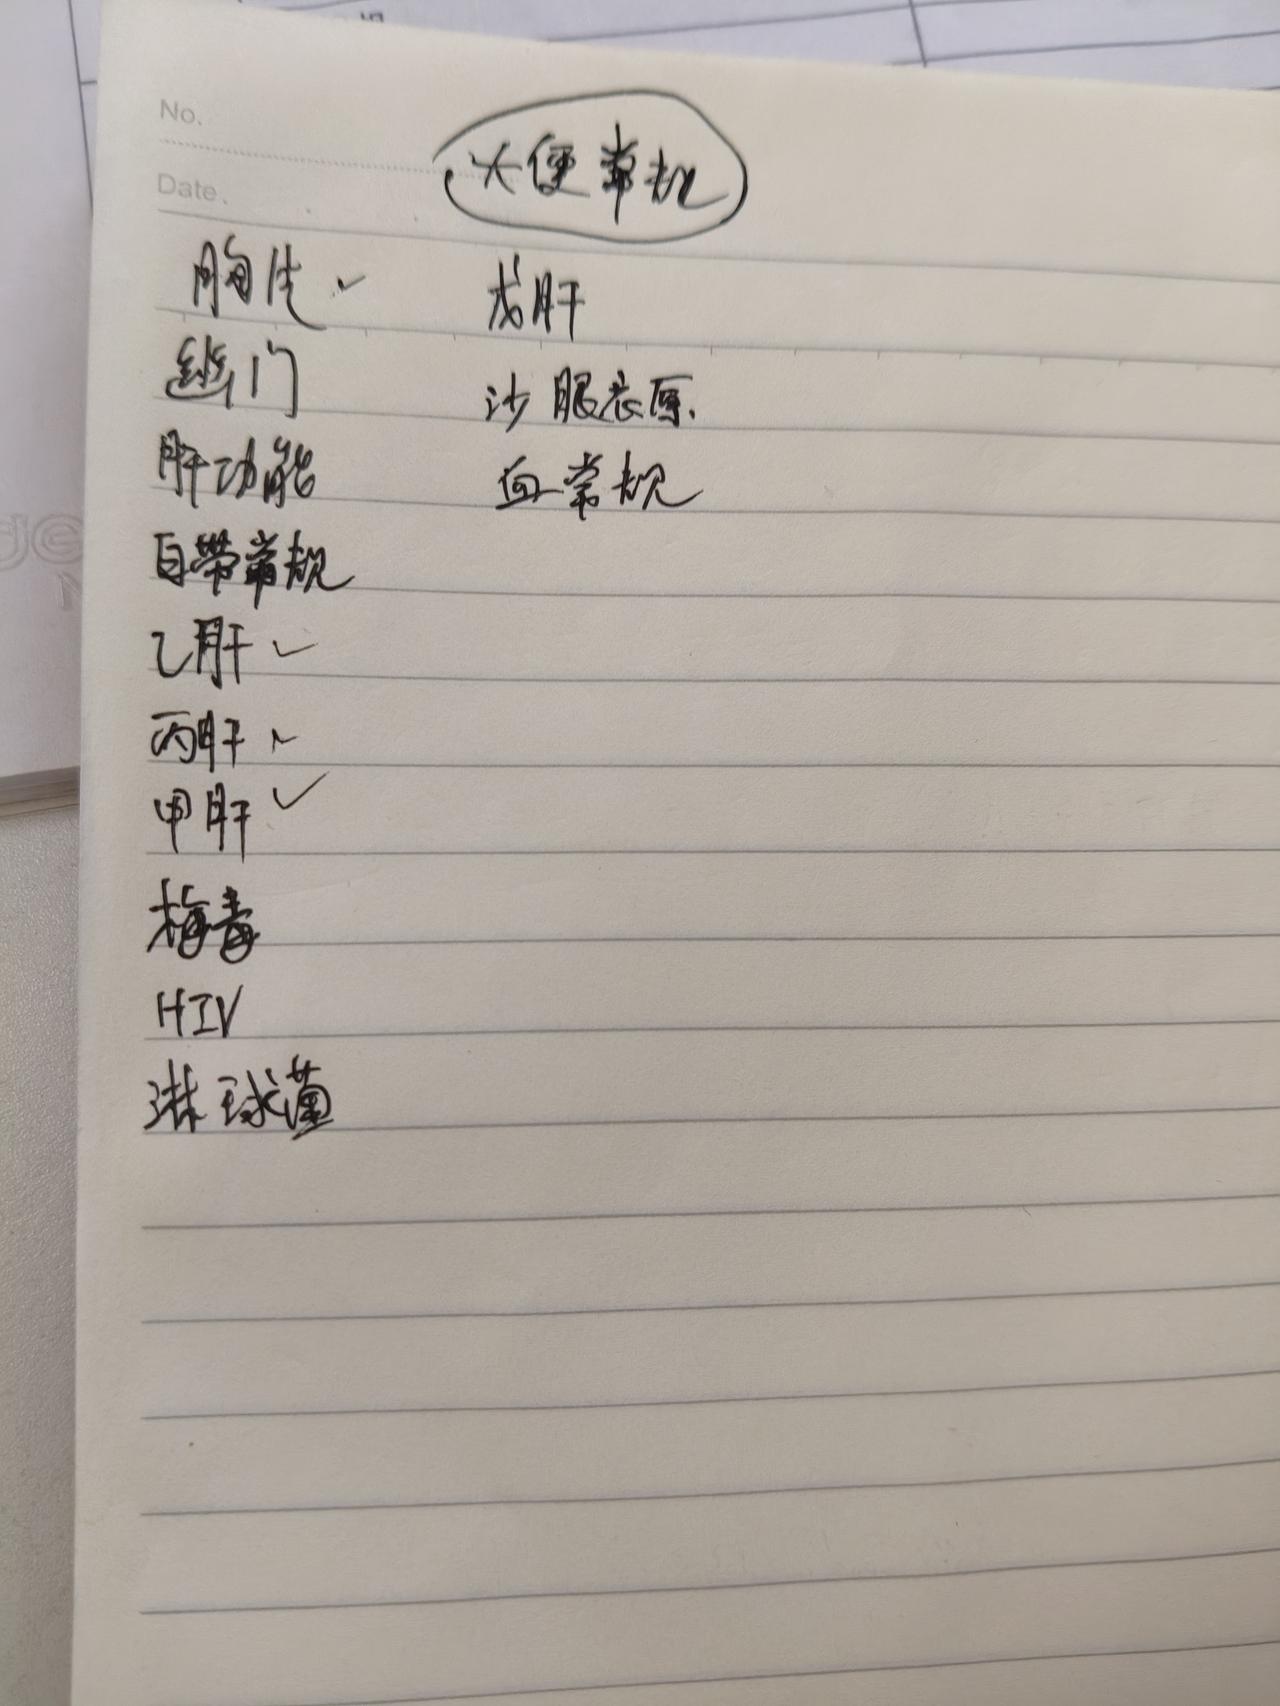 No.
大便常规
Date.
胸片 ✓
戊肝
幽门
沙眼衣原.
肝功能
血常规
白带常规
乙肝 ✓
丙肝 ✓
甲肝 ✓
梅毒
HIV
淋球菌